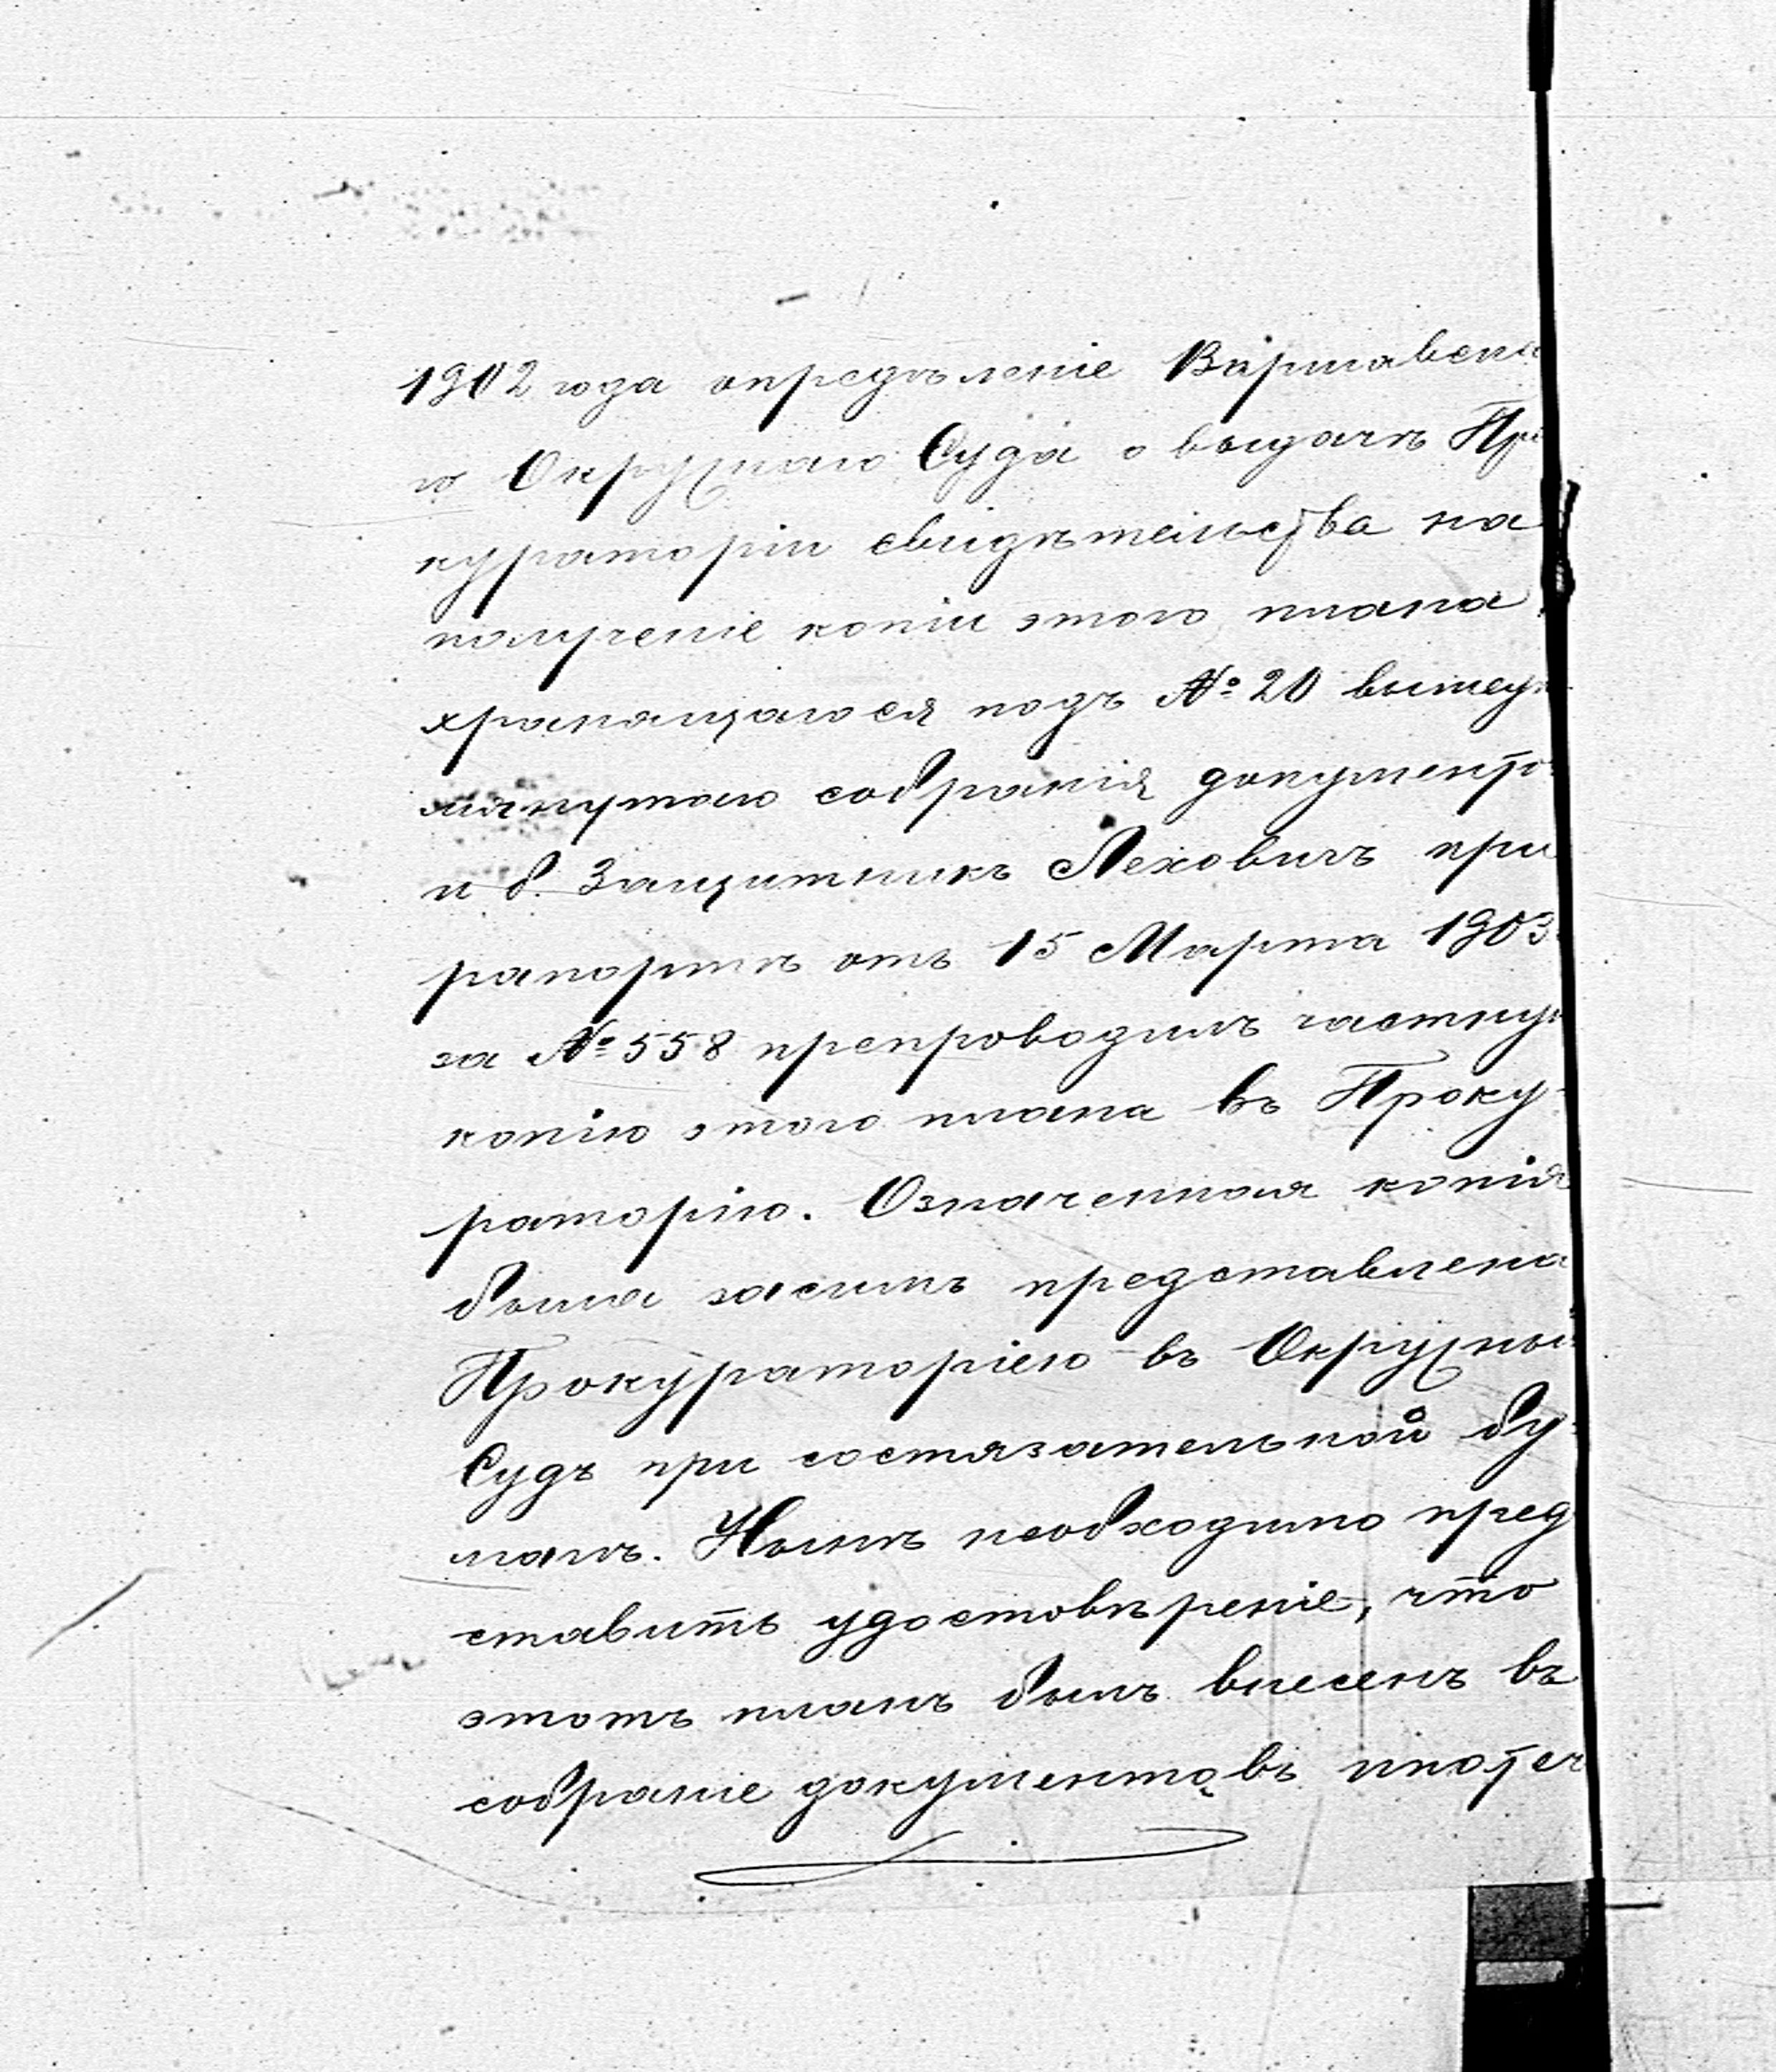 1902 года опредѣленіе Варшавска
го Окружнаго Суда о выдачѣ Про
кураторіи свидѣтельства на
полученіе копіи этого плана
хранящагося подъ № 20 вышеу
мянутаго собранія документо
и б. Защитникъ Лехович при
рапортѣ отъ 15 Марта 1903
за № 558 препроводилъ частную
копію этого плана въ Проку-
раторію. Означенная копія
была засимъ представлена
Прокураторіею въ Окружный
Судъ при состязательной бу-
магѣ. Нынѣ необходимо пред
ставить удостовѣреніе, что
этотъ планъ былъ внесенъ въ
собраніе документовъ ипотеч